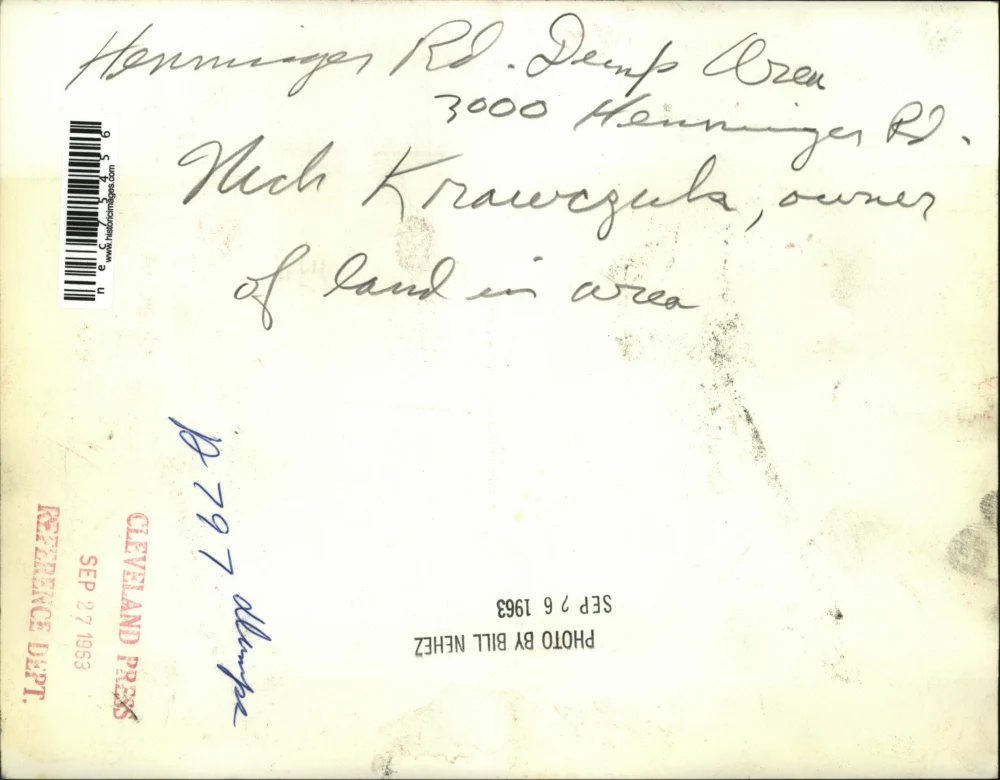 Henninger Rd. Dump Area
3000 Henninger Rd.
Nick Krawczuk, owner
of land in area
nec75456
www.historicimages.com
797 dumps
CLEVELAND PRESS
SEP 27 1963
REFERENCE DEPT.
PHOTO BY BILL NEHEZ
SEP 26 1963